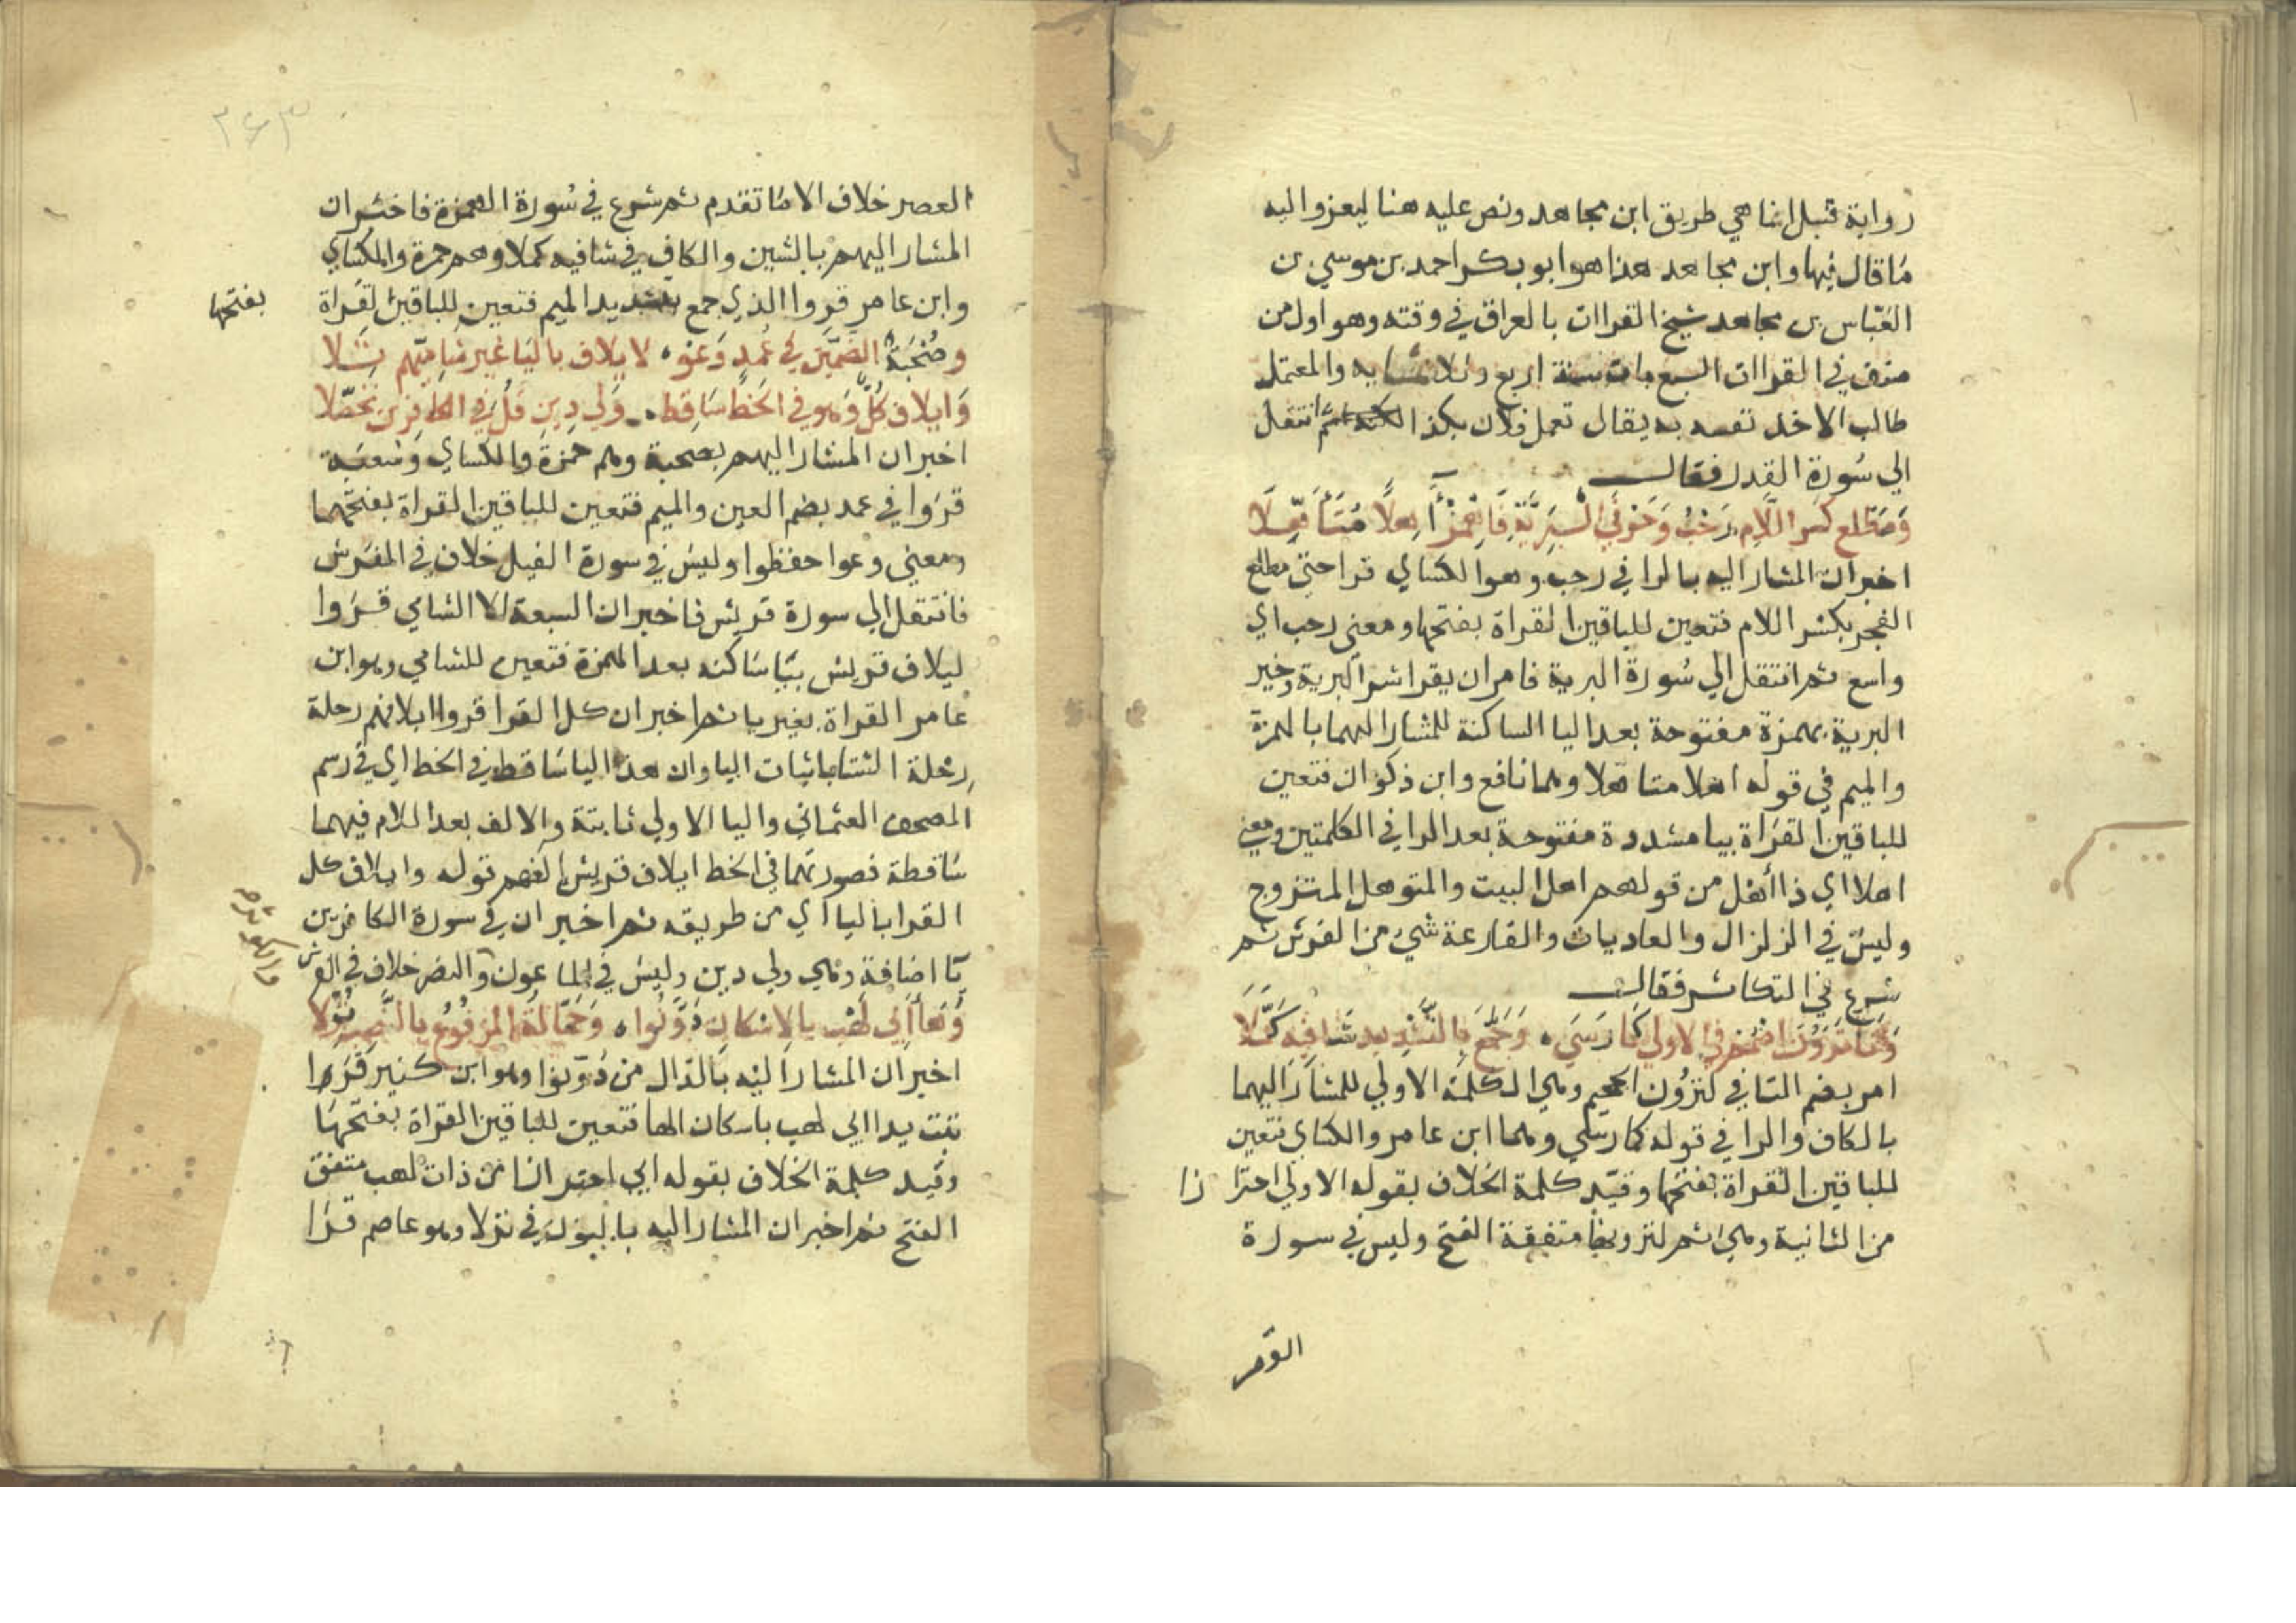 رواية قنبل انما هي طريق ابن مجاهد ونص عليه هنا ليعزوا اليه
ما قال فيها وابن مجاهد هذا هو ابو بكر احمد بن موسي بن
العباس بن مجاهد شيخ القراات بالعراق في وقته وهو اول من
صنف في القراات السبع مات سنة اربع وثلاثمايه والمعتمل
طالب الاخذ نفسه به يقال تعمل فلان بكذا ثم انتقل
الي سورة القدر فقال
وَمطلع كسر اللام رَحْبٌ وَحَرْفَي الْبَرِيَّةِ فَاهْمِزْ اهلًا مُتَأَهِّلَا
اخبر ان المشار اليه بالرا في رحب وهو الكساي قرا حتي مطلع
الفجر بكسر اللام فتعين للباقين القراة بفتحها ومعني رحب اي
واسع ثم انتقل الي سورة البرية فامر ان يقرا شر البرية وخير
البرية بهمزة مفتوحة بعد اليا الساكنة للمشار اليهما بالهمزة
والميم في قوله اهلا متاهلا وهما نافع وابن ذكوان فتعين
للباقين القراة بيا مشددة مفتوحة بعد الرا في الكلمتين ومعني
اهلا اي ذا أهل من قولهم اهل البيت والمتوهل المتزوج
وليس في الزلزال والعاديات والقارعة شيء من الفرش ثم
شرع في التكاثر فقال
وَتا تَرَوُنَّ اضمم في الاولي كَما رَسَي وَجَمَّعَ بِالتَّشْدِيدِ شَافِيهِ كَمَّلَا
امر بضم التا في لترون الجحيم وهي الكلمة الاولي للمشار اليهما
بالكاف والرا في قوله كما رسي وهما ابن عامر والكساي فتعين
للباقين القراة بفتحها وقيد كلمة الخلاف بقوله الاولي احترا زا
من الثانية وهي ثم لترونها متفقة الفتح وليس في سورة
٢٤٣
العصر خلاف الا ما تقدم ثم شرع في سورة الهمزة فاخبر ان
المشار اليهم بالشين والكاف في شافيه كملا وهم حمزة والكساي
وابن عامر قروا الذي جمع بتشديد الميم فتعين للباقين القراة
بفتحها
وصُحْبَةٌ الضمين في عُمُدٍ وَعَوْا لايلاف باليا غير شاميهم تلا
وَايلاف كُلٌّ وهو في الخط ساقط وَلي دِين قُلْ في الكافرين تحصّلا
اخبر ان المشار اليهم بصحبة وهم حمزة والكساي وشعبة
قروا في عمد بضم العين والميم فتعين للباقين القراة بفتحهما
ومعني وعوا حفظوا وليس في سورة الفيل خلاف في الفرش
فانتقل الي سورة قريش فاخبر ان السبعة الا الشامي قروا
ليلاف قريش بيا ساكنه بعد الهمزة فتعين للشامي وهو ابن
عامر القراة بغير يا ثم اخبر ان كل القرا قروا ايلافهم رحلة
رحلة الشتا باثبات اليا وان هذه اليا ساقط في الخط اي في رسم
المصحف العثماني واليا الاولي ثابتة والالف بعد اللام فيهما
ساقطة فصورتهما في الخط ايلاف قريش الفهم قوله وايلاف كل
القرا باليا اي من طريقه ثم اخبر ان في سورة الكافرين
يا اضافة وهي ولي دين وليس في الماعون والنصر خلاف في الفرش
وَها أَبي لهْب بالاسكان دَوَّنُوا وَحَمَّالَةُ المرفوعُ بالنَّصبِ نُزِّلا
اخبر ان المشار اليه بالدال من دونوا وهو ابن كثير قرا
تبت يدا ابي لهب باسكان الها فتعين للباقين القراة بفتحها
وقيد كلمة الخلاف بقوله ابي احترازا من ذات لهب متفق
الفتح ثم اخبر ان المشار اليه بالنون في نزلا وهو عاصم قرا